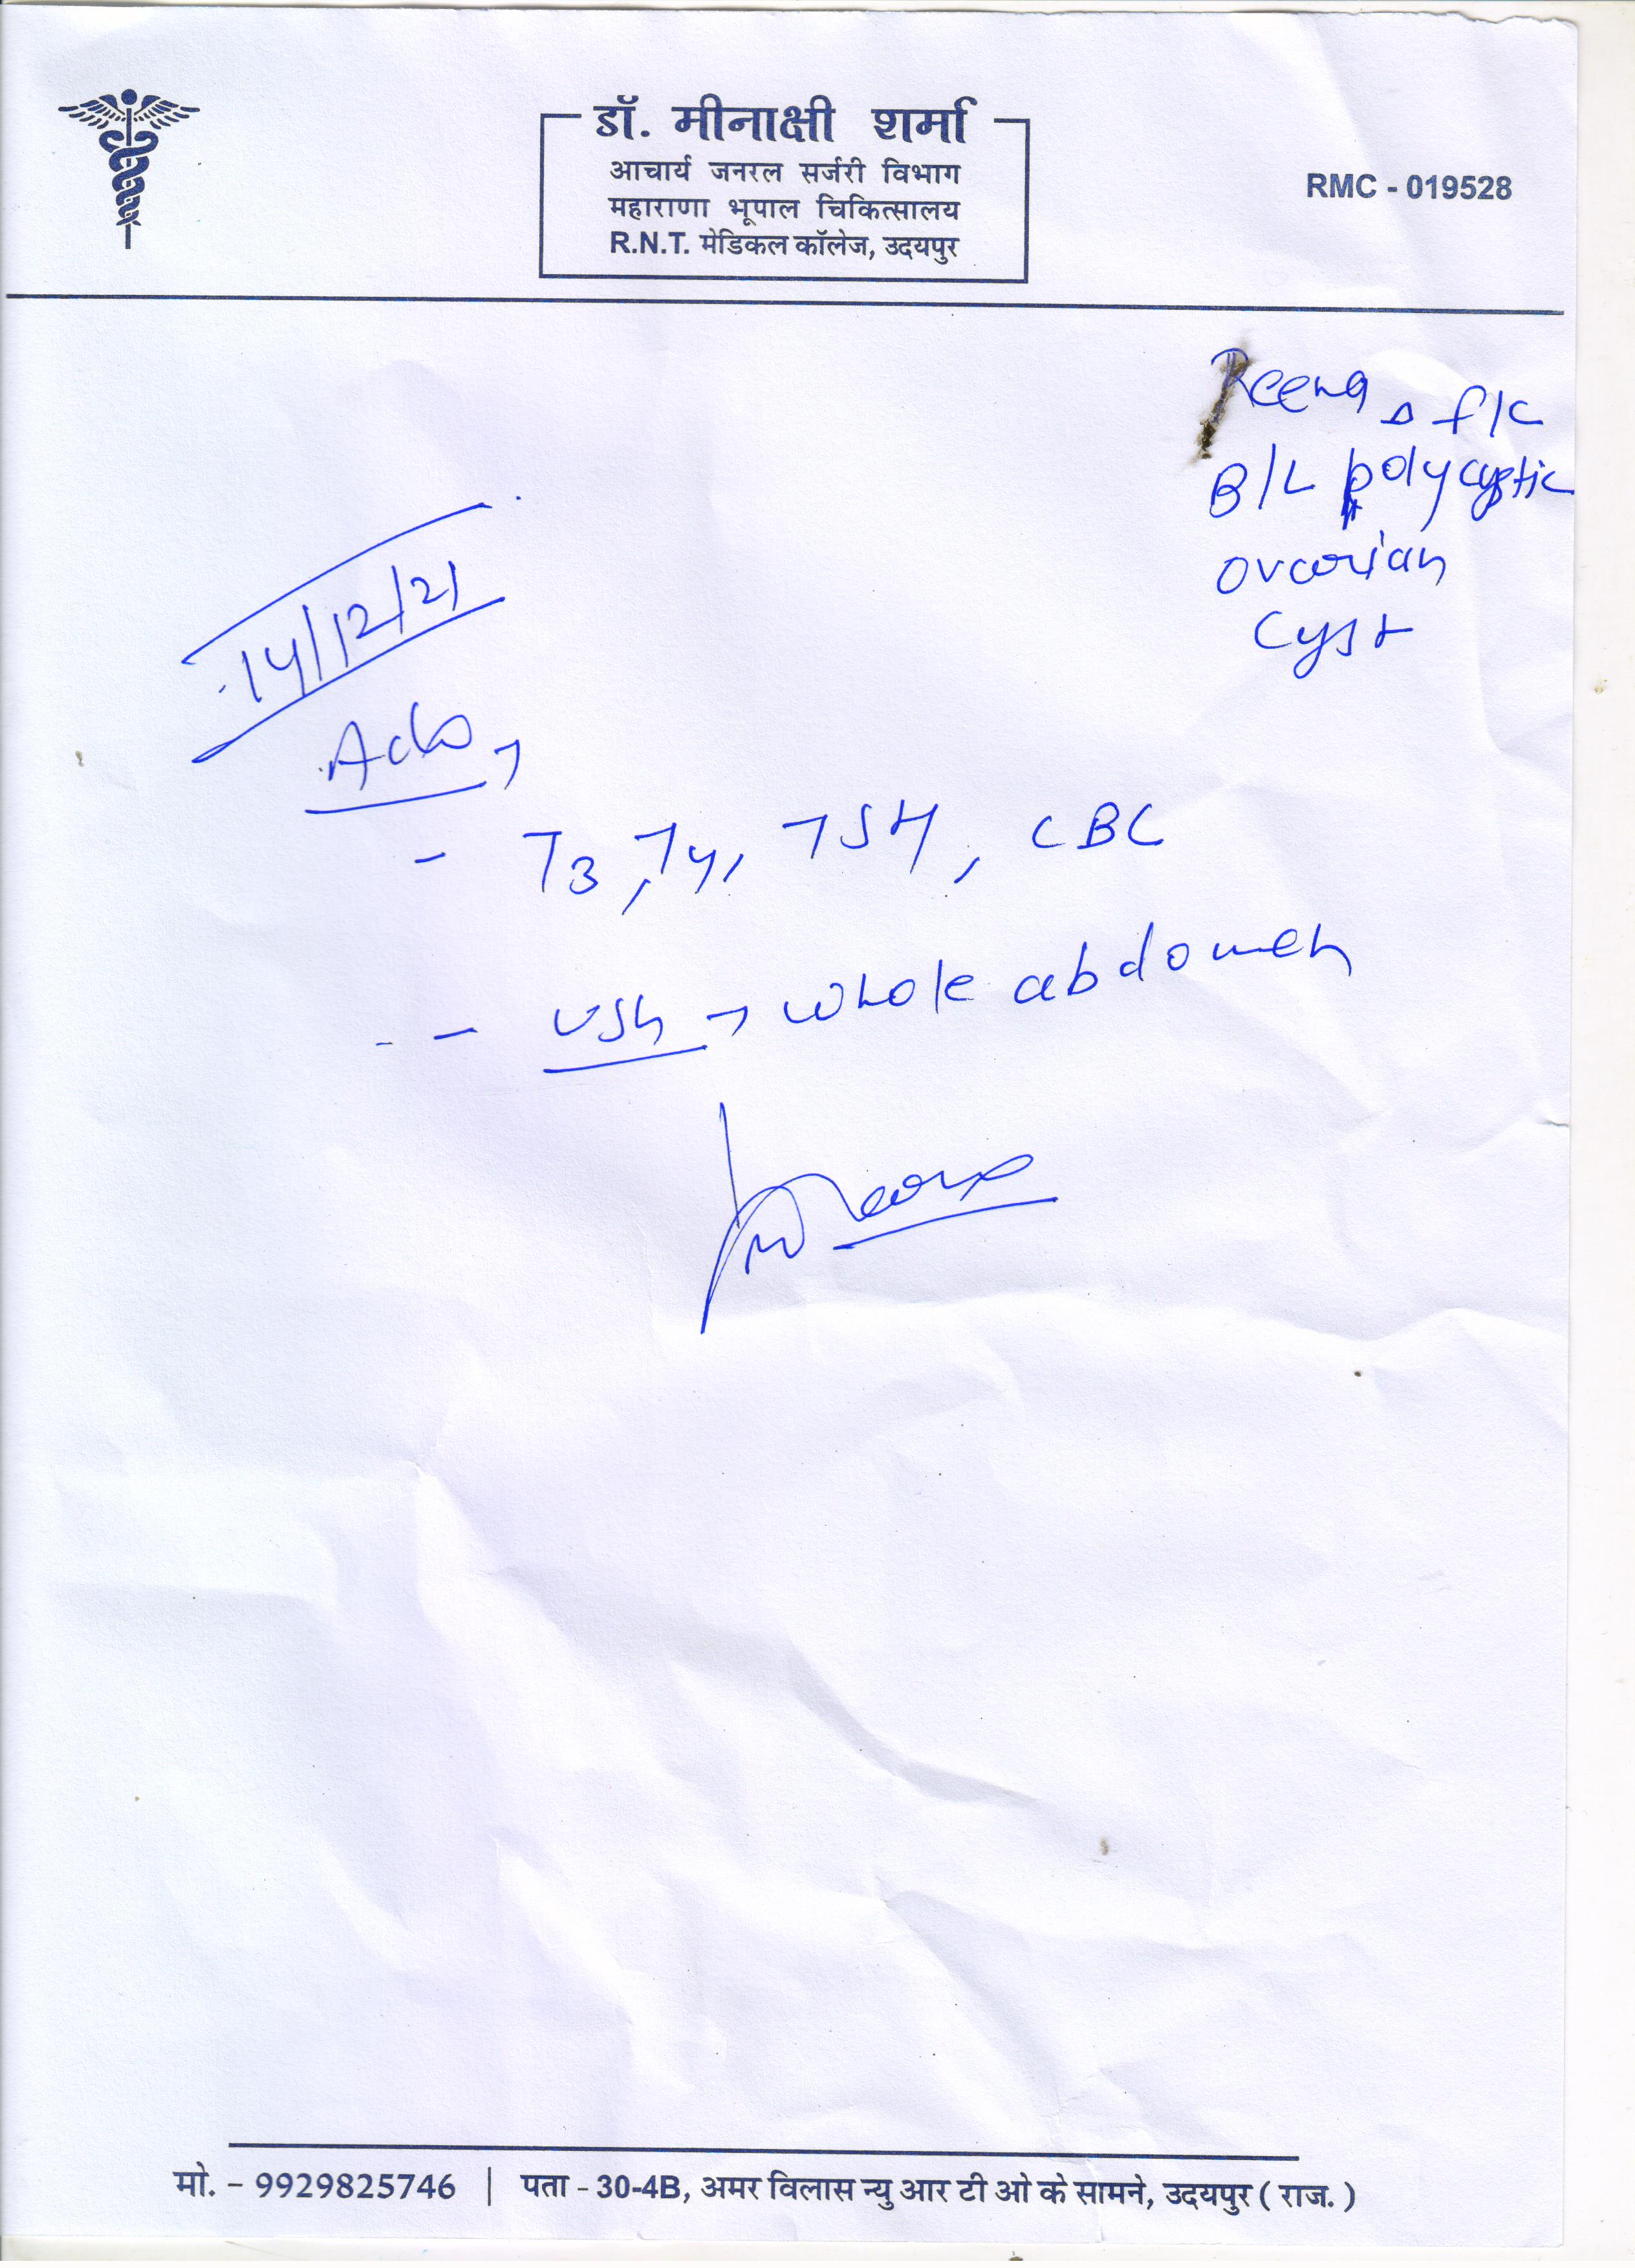 डॉ. मीनाक्षी शर्मा
आचार्य जनरल सर्जरी विभाग
महाराणा भूपाल चिकित्सालय
R.N.T. मेडिकल कॉलेज, उदयपुर
RMC - 019528
Reena f/c
B/L polycystic
ovarian
cyst
14/12/21
- T3, T4, TSH, CBC
- USG → whole abdomen
मो. - 9929825746 | पता - 30-4B, अमर विलास न्यु आर टी ओ के सामने, उदयपुर ( राज. )